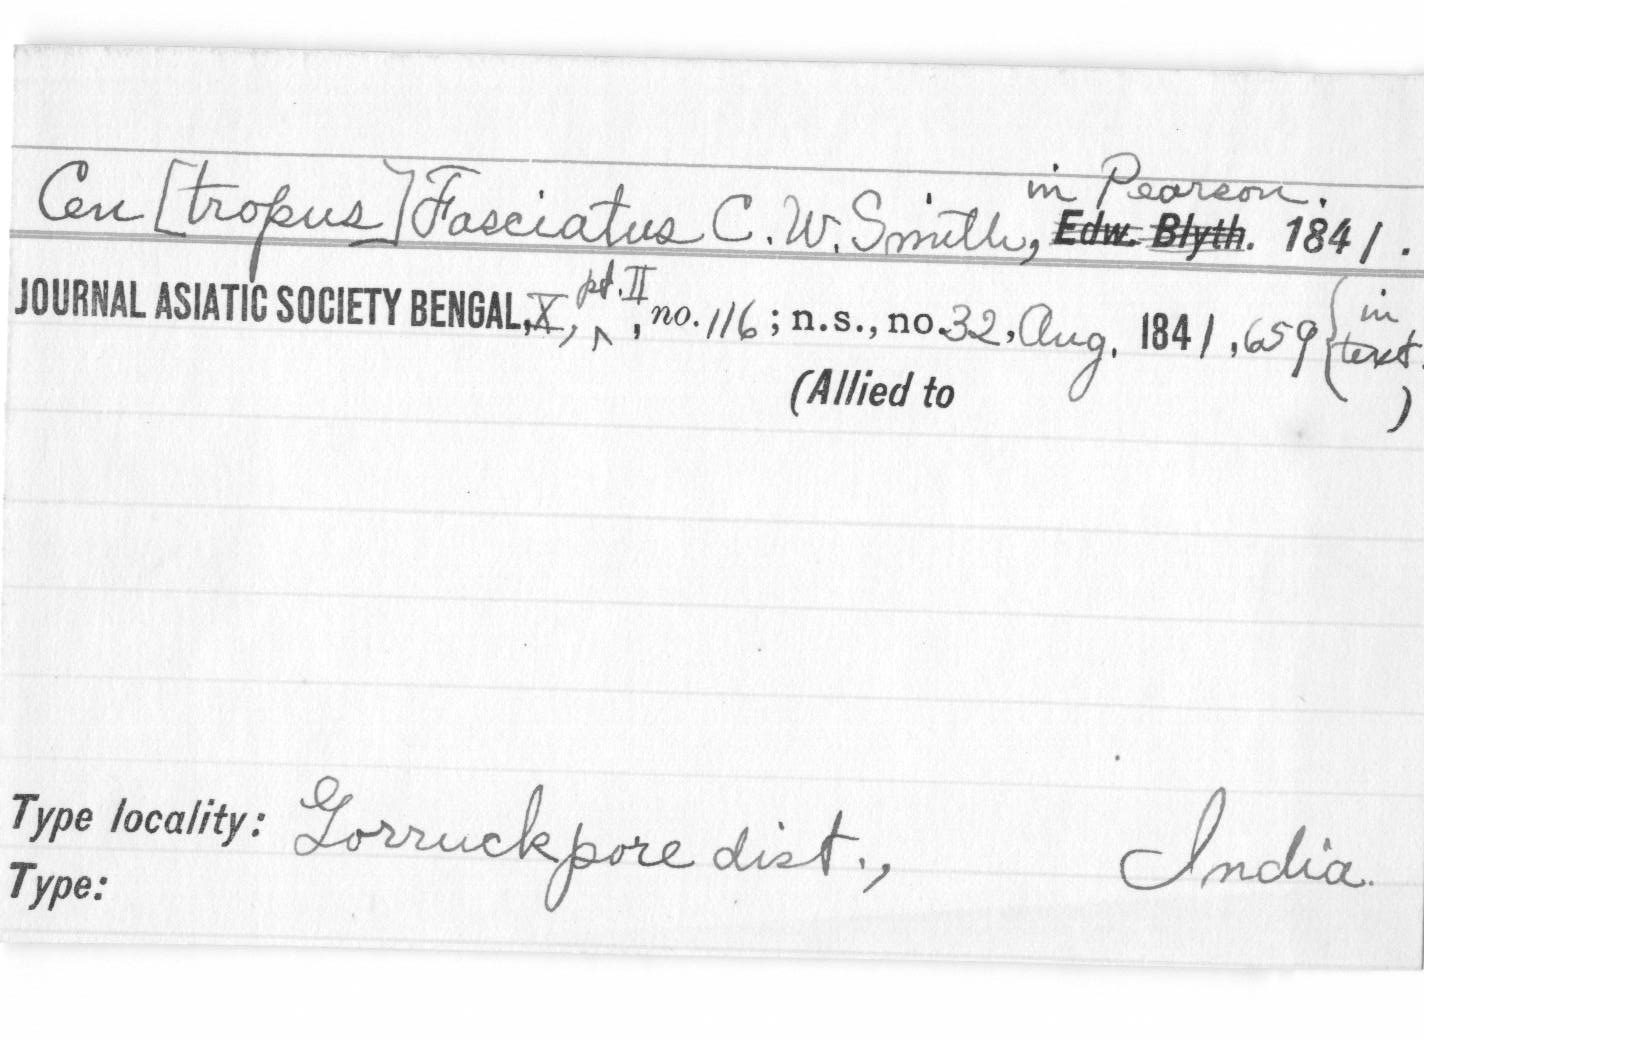 Cen[tropus] Fasciatus C. W. Smith, in Pearson. Edw. Blyth. 1841.
JOURNAL ASIATIC SOCIETY BENGAL, X, pt. II, no. 116; n.s., no. 32, Aug. 1841, 659 {in text.
(Allied to )
Type locality: Gorruckpore dist., India.
Type: